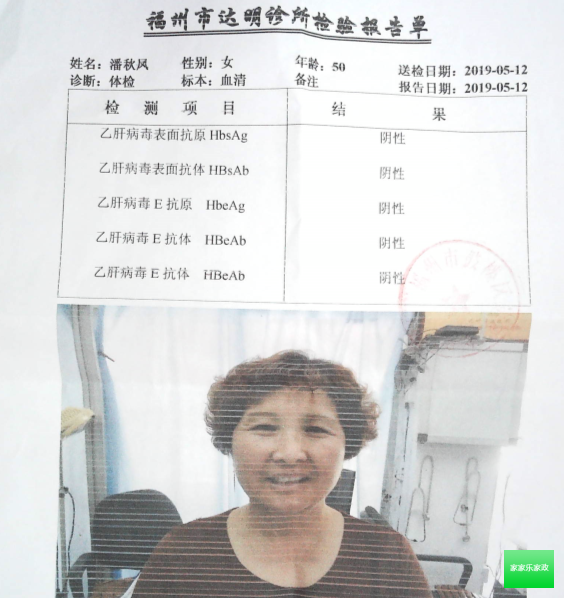 福州市达明诊所检验报告单
姓名：潘秋风 性别：女 年龄：50 送检日期：2019-05-12
诊断：体检 标本：血清 备注 报告日期：2019-05-12
检 测 项 目 结 果
乙肝病毒表面抗原 HbsAg 阴性
乙肝病毒表面抗体 HBsAb 阴性
乙肝病毒 E 抗原 HbeAg 阴性
乙肝病毒 E 抗体 HBeAb 阴性
乙肝病毒 E 抗体 HBeAb 阴性
家家乐家政